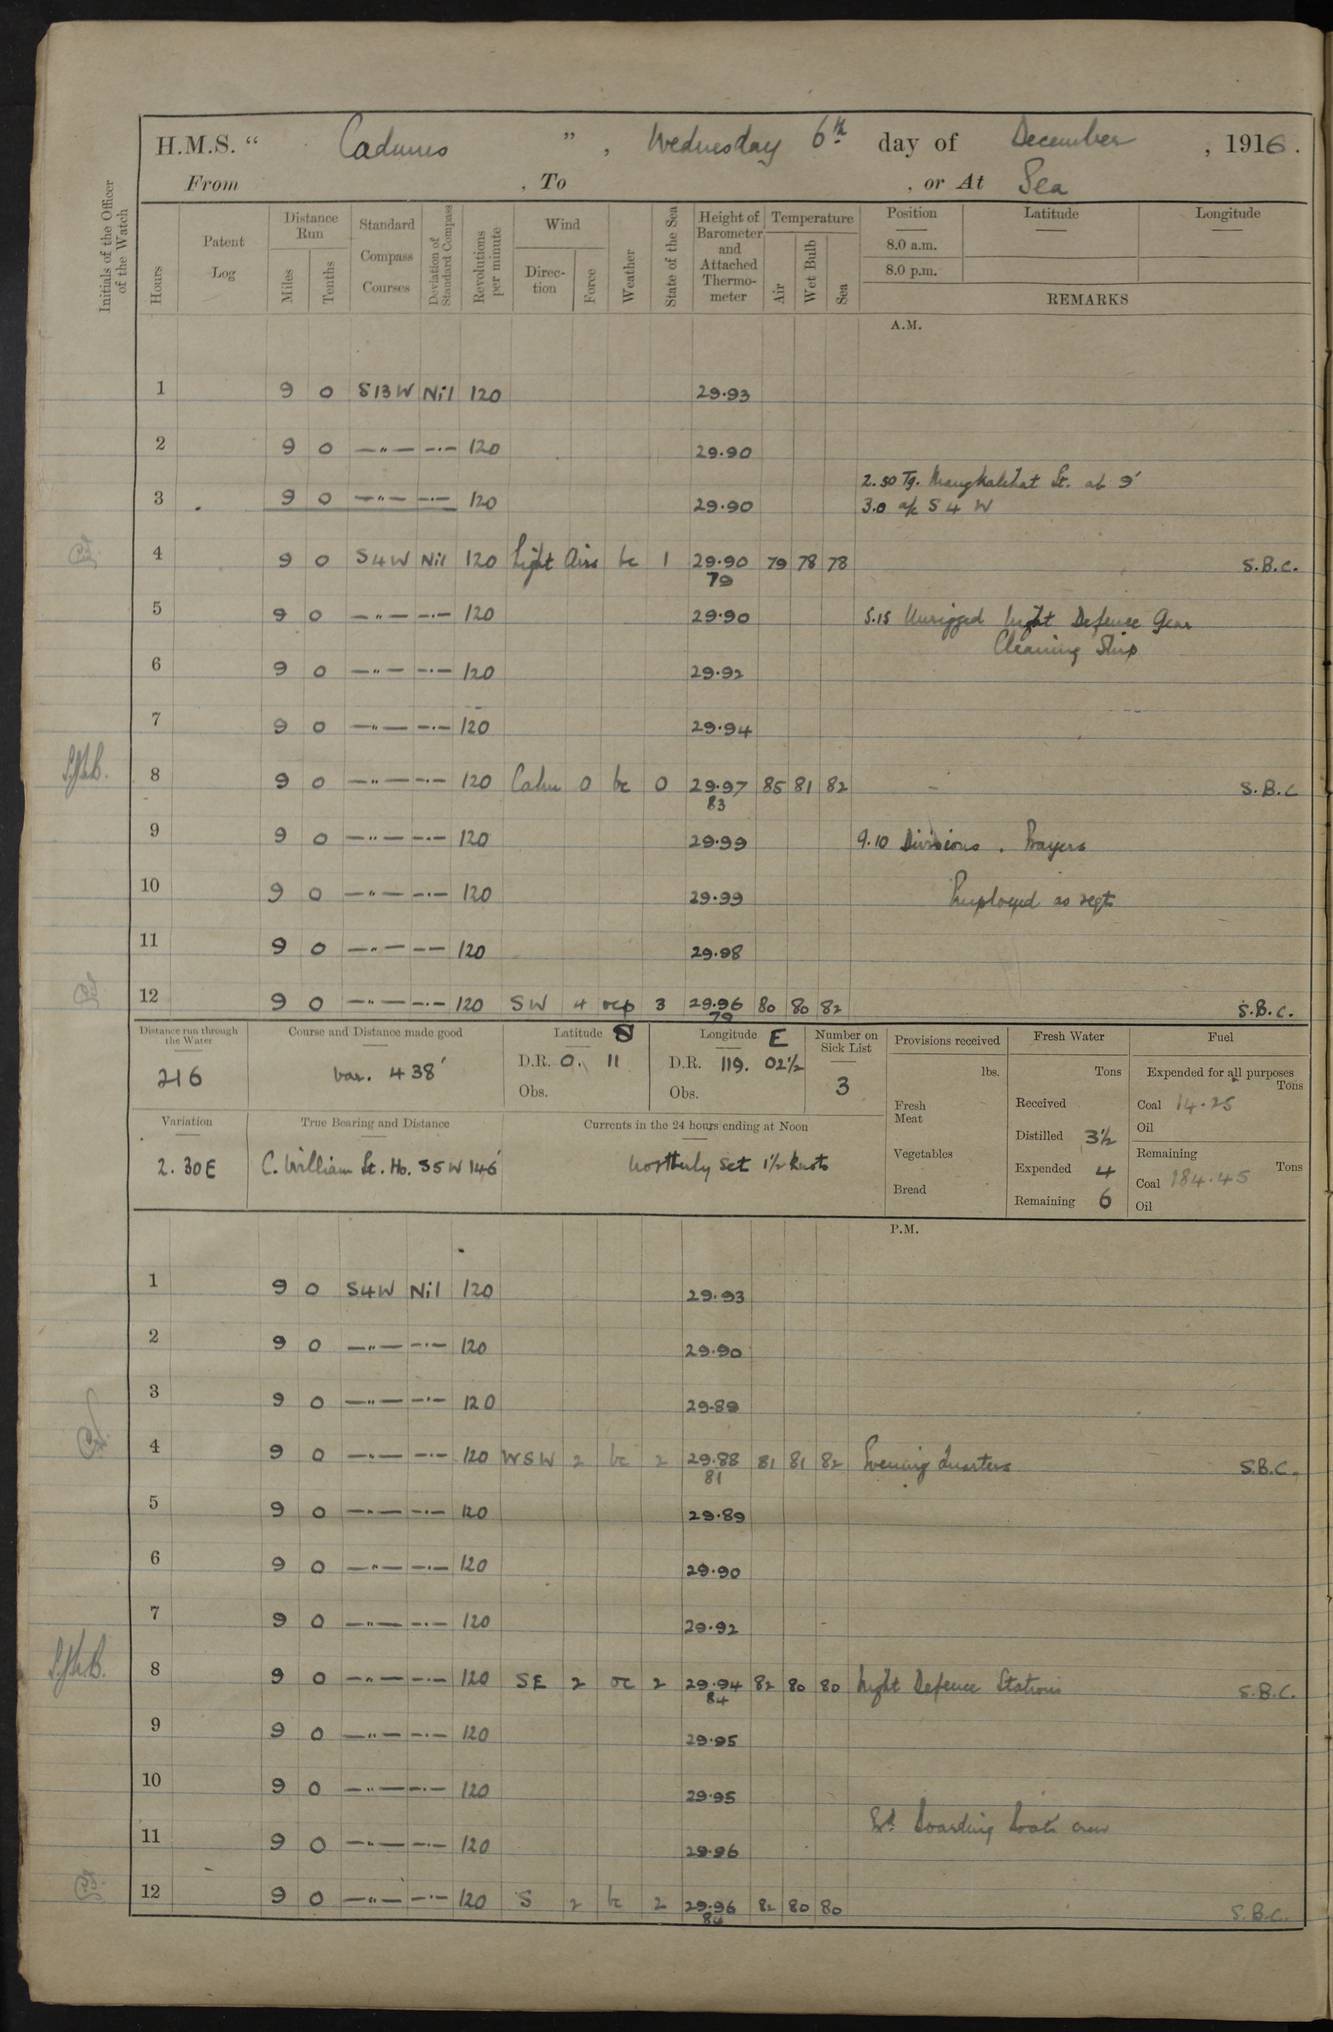 H.M.S. “ Cadmus ” , Wednesday 6th day of December , 1916 .
From , To , or At Sea
Initials of the Officer of the Watch
Hours
Patent Log
Distance Run
Miles Tenths
Standard Compass Courses
Deviation of Standard Compass
Revolutions per minute
Wind
Direc-tion Force
Weather
State of the Sea
Height of Barometer and Attached Thermo-meter
Temperature
Air Wet Bulb Sea
Position Latitude Longitude
8.0 a.m.
8.0 p.m.
REMARKS
A.M.
1 9 0 S13W Nil 120 29.93
2 9 0 —„— —·— 120 29.90
2.50 Tg. Mangkalihat Lt. ab 9'
3 9 0 —„— —·— 120 29.90 3.0 a/c S 4 W
4 9 0 S4W Nil 120 Light Airs bc 1 29.90 79 78 78 S.B.C.
79
5 9 0 —„— —·— 120 29.90 5.15 Unrigged Night Defence Gear
Cleaning Ship
6 9 0 —„— —·— 120 29.92
7 9 0 —„— —·— 120 29.94
8 9 0 —„— —·— 120 Calm 0 bc 0 29.97 85 81 82 S.B.C
83
9 9 0 —„— —·— 120 29.99 9.10 Divisions . Prayers
10 9 0 —„— —·— 120 29.99 Employed as reqte
11 9 0 —„— —— 120 29.98
12 9 0 —„— —·— 120 SW 4 ocp 3 29.96 80 80 82 S.B.C.
79
Distance run through the Water
216
Course and Distance made good
var. 438'
Latitude S
D.R. 0. 11
Obs.
Longitude E
D.R. 119. 02½
Obs.
Number on Sick List
3
Variation
2.30E
True Bearing and Distance
C. William Lt. Ho. S5W 146'
Currents in the 24 hours ending at Noon
Northerly Set 1½ knots
Provisions received
lbs.
Fresh Meat
Vegetables
Bread
Fresh Water
Tons
Received
Distilled 3½
Expended 4
Remaining 6
Fuel
Expended for all purposes
Tons
Coal 14.25
Oil
Remaining
Tons
Coal 184.45
Oil
P.M.
1 9 0 S4W Nil 120 29.93
2 9 0 —„— —·— 120 29.90
3 9 0 —„— —·— 120 29.89
4 9 0 —„— —·— 120 WSW 2 bc 2 29.88 81 81 82 Evening Quarters S.B.C.
81
5 9 0 —„— —·— 120 29.89
6 9 0 —„— —·— 120 29.90
7 9 0 —„— —·— 120 29.92
8 9 0 —„— —·— 120 SE 2 oc 2 29.94 82 80 80 Night Defence Stations S.B.C.
84
9 9 0 —„— —·— 120 29.95
10 9 0 —„— —·— 120 29.95
boarding boats crew
11 9 0 —„— —·— 120 29.96
12 9 0 —„— —·— 120 S 2 bc 2 29.96 82 80 80 S.B.C.
84